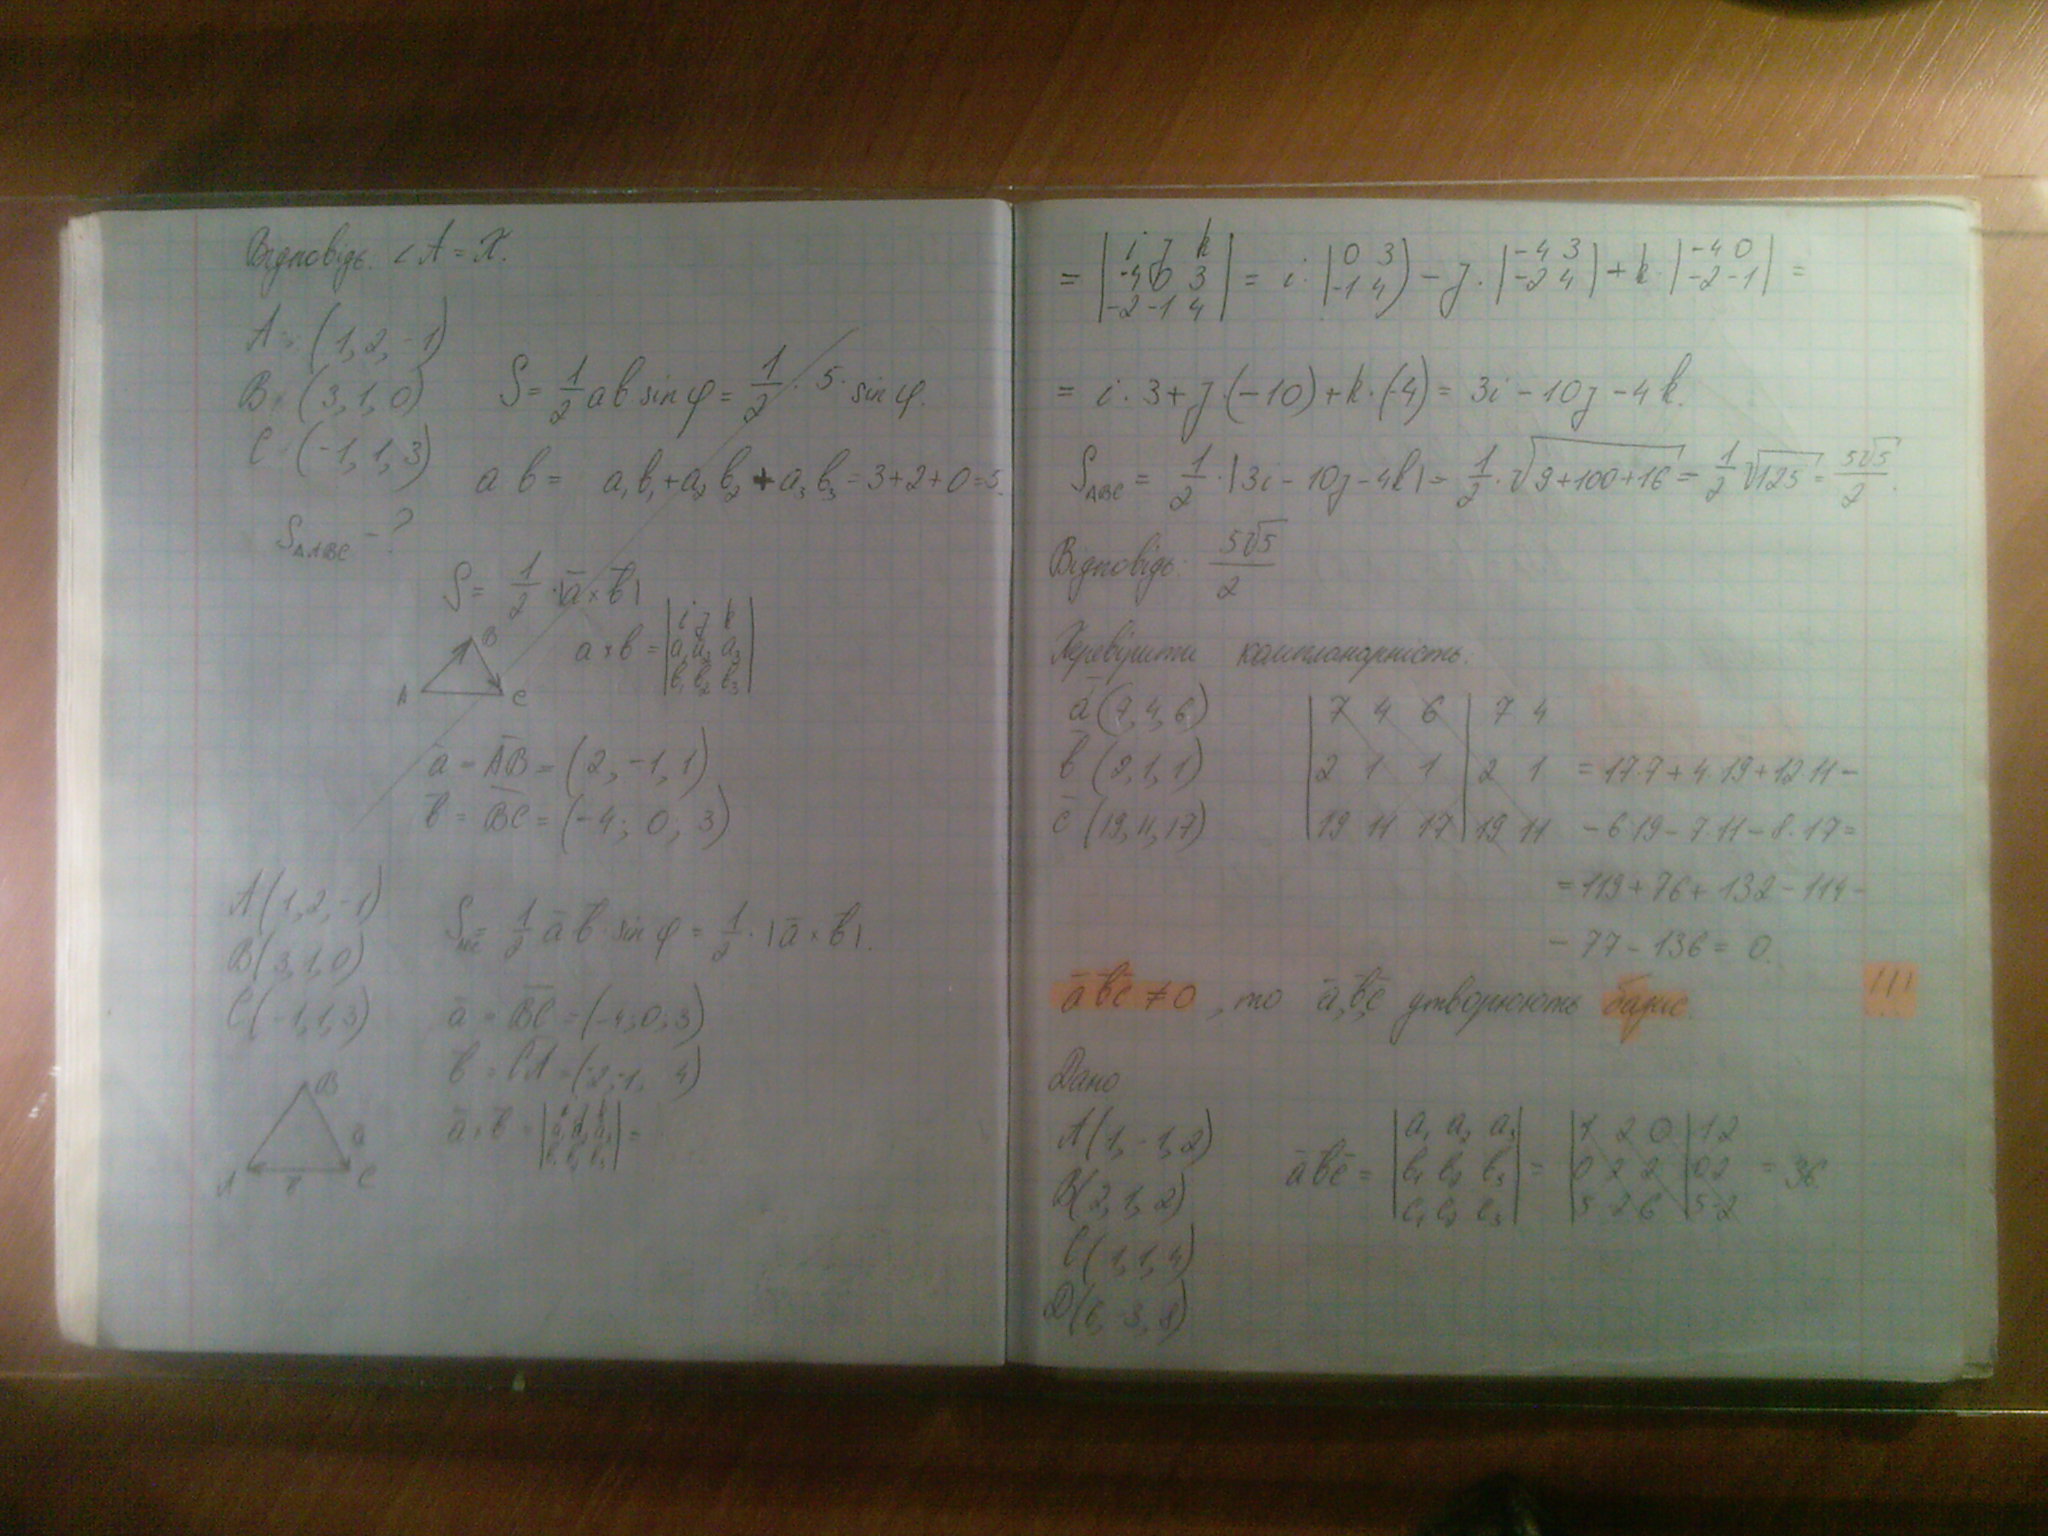 Відповідь. ∠A = π.
A = (1, 2, -1)
B = (3, 1, 0)
C = (-1, 1, 3)
S = 1/2 ab sin φ = 1/2 · 5 · sin φ.
a b = a₁b₁ + a₂b₂ + a₃b₃ = 3+2+0=5.
S△ABC - ?
S = 1/2 · |a̅ × b̅|
a × b = |i j k; a₁ a₂ a₃; b₁ b₂ b₃|
B
A C
a̅ = A̅B̅ = (2, -1, 1)
b̅ = B̅C̅ = (-4; 0; 3)
A(1, 2, -1)
B(3, 1, 0)
C(-1, 1, 3)
S = 1/2 a̅ b̅ · sin φ = 1/2 · |a̅ × b̅|.
a̅ = B̅C̅ = (-4; 0; 3)
b̅ = C̅A̅ = (-2, -1, 4)
a̅ × b̅ =
B
a
A C
= |i j k; -4 0 3; -2 -1 4| = i · |0 3; -1 4| - j · |-4 3; -2 4| + k · |-4 0; -2 -1| =
= i · 3 + j · (-10) + k · (-4) = 3i - 10j - 4k.
S ABC = 1/2 · |3i - 10j - 4k| = 1/2 · √(9+100+16) = 1/2 √125 = 5√5/2.
Відповідь: 5√5/2
Перевірити компланарність:
a̅ (7, 4, 6)
b̅ (2, 1, 1)
c̅ (19, 11, 17)
|7 4 6| 7 4
|2 1 1| 2 1 = 17·7 + 4·19 + 12·11 -
|19 11 17| 19 11 - 6·19 - 7·11 - 8·17 =
= 119 + 76 + 132 - 114 -
- 77 - 136 = 0.
a̅ b̅ c̅ ≠ 0, то a̅, b̅, c̅ утворюють базис. !!!
Дано
A(1, -1, 2)
B(2, 1, 2)
C(1, 1, 4)
D(6, -3, 8)
a̅ b̅ c̅ = |a₁ a₂ a₃; b₁ b₂ b₃; c₁ c₂ c₃| = |1 2 0; 0 2 2; 5 -2 6| 1 2; 0 2; 5 -2 = 36.